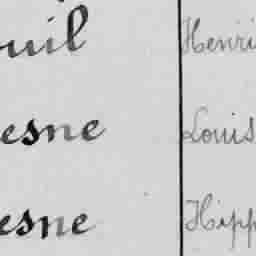 uil Henri
esne Louis
esne Hipp